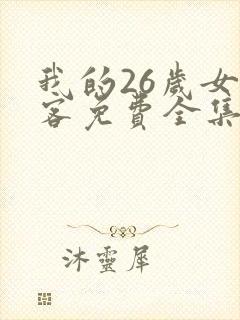 我的26歲女
客免費全集
沐靈犀